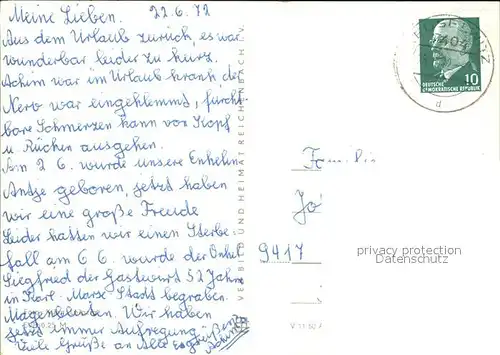 Meine Lieben. 22.6.72
Aus dem Urlaub zurück, es war
wunderbar leider zu kurz.
Achim war im Urlaub krank der
Nerv war eingeklemmt, furcht-
bare Schmerzen kann vor Kopf
u Rücken ausgehen.
Am 2 6. wurde unsere Enkelin
Antje geboren, jetzt haben
wir eine große Freude
Leider hatten wir einen Sterbe-
fall am 6 6. wurde der Onkel
Siegfried der Gastwirt 52 Jahre
in Karl-Marx-Stadt begraben.
Magenbluten. Wir haben
jetzt immer Aufregung
Viele Grüße an Alle
VERLAG UND HEIMAT REICHENBACH
10
DEUTSCHE
DEMOKRATISCHE REPUBLIK
d
Familie
9417
privacy protection
Datenschutz